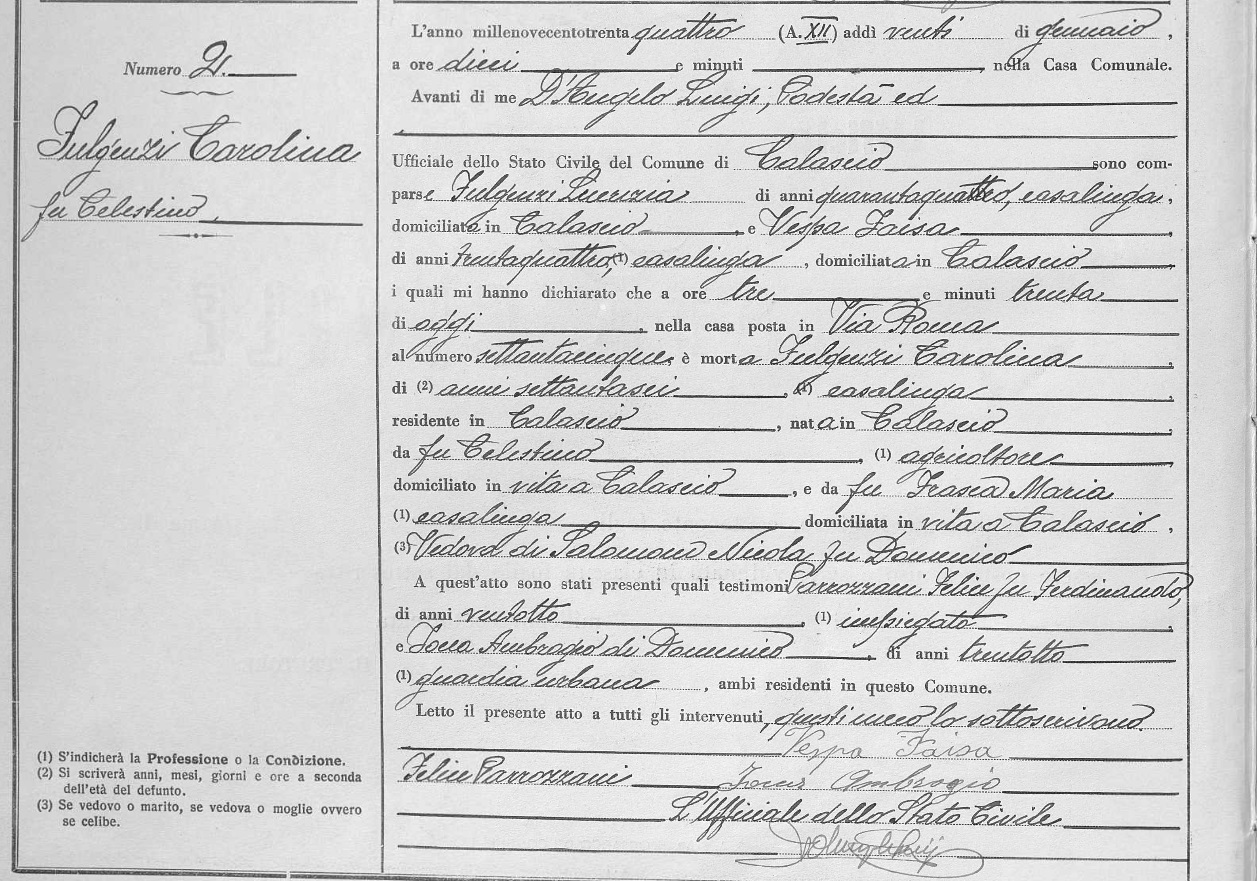 Numero 2.
Fulgenzi Carolina
fu Celestino
(1) S'indicherà la Professione o la Condizione.
(2) Si scriverà anni, mesi, giorni e ore a seconda
dell'età del defunto.
(3) Se vedovo o marito, se vedova o moglie ovvero
se celibe.
L'anno millenovecentotrenta quattro (A. XII) addì venti di gennaio,
a ore dieci e minuti , nella Casa Comunale.
Avanti di me D'Angelo Luigi, Podestà ed
Ufficiale dello Stato Civile del Comune di Calascio sono com-
parse Fulgenzi di anni quarantaquattro, casalinga,
domiciliata in Calascio e Vespa
di anni trentaquattro, (1) casalinga, domiciliata in Calascio
i quali mi hanno dichiarato che a ore tre e minuti trenta
di oggi, nella casa posta in Via Roma
al numero settantacinque è morta Fulgenzi Carolina
di (2) anni settantasei, (1) casalinga
residente in Calascio, nata in Calascio
da fu Celestino, (1) agricoltore
domiciliato in vita a Calascio, e da fu Frasca Maria
(1) casalinga domiciliata in vita a Calascio,
(3) Vedova di Salomone Nicola fu Domenico
A quest'atto sono stati presenti quali testimoni Parrozzani Felice fu Ferdinando,
di anni ventotto, (1) impiegato
e Ambrogio di Domenico, di anni trentotto
(1) guardia urbana, ambi residenti in questo Comune.
Letto il presente atto a tutti gli intervenuti, questi meco lo sottoscrivono.
Vespa
Felice Parrozzani Ambrogio
L'Ufficiale dello Stato Civile